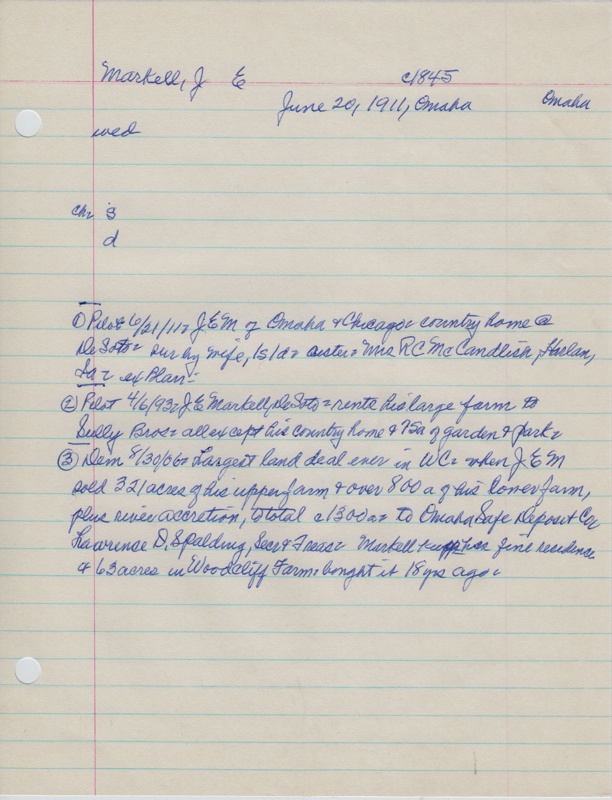 Markell, J E c1845
June 20, 1911, Omaha Omaha
wed
ch: s
d
① Pilot 6/21/11: J E M of Omaha & Chicago: country home @
DeSoto: sur by wife, 1s/1d: sister: Mrs R C McCandlish, Harlan,
Ia: ex Blair:
② Pilot 4/6/93: J E Markell, DeSoto: rents his large farm to
Selly Bros: all except his country home & 75a of garden & park:
③ Dem 8/30/06: Largest land deal ever in WC: when J E M
sold 321 acres of his upper farm & over 800 a of his lower farm,
plus river accretion, total c1300a: to Omaha Safe Deposit Co:
Lawrence D. Spalding, Sec & Treas: Markell keeps his fine residence
& 63 acres in Woodcliff Farm: bought it 18 yrs ago: